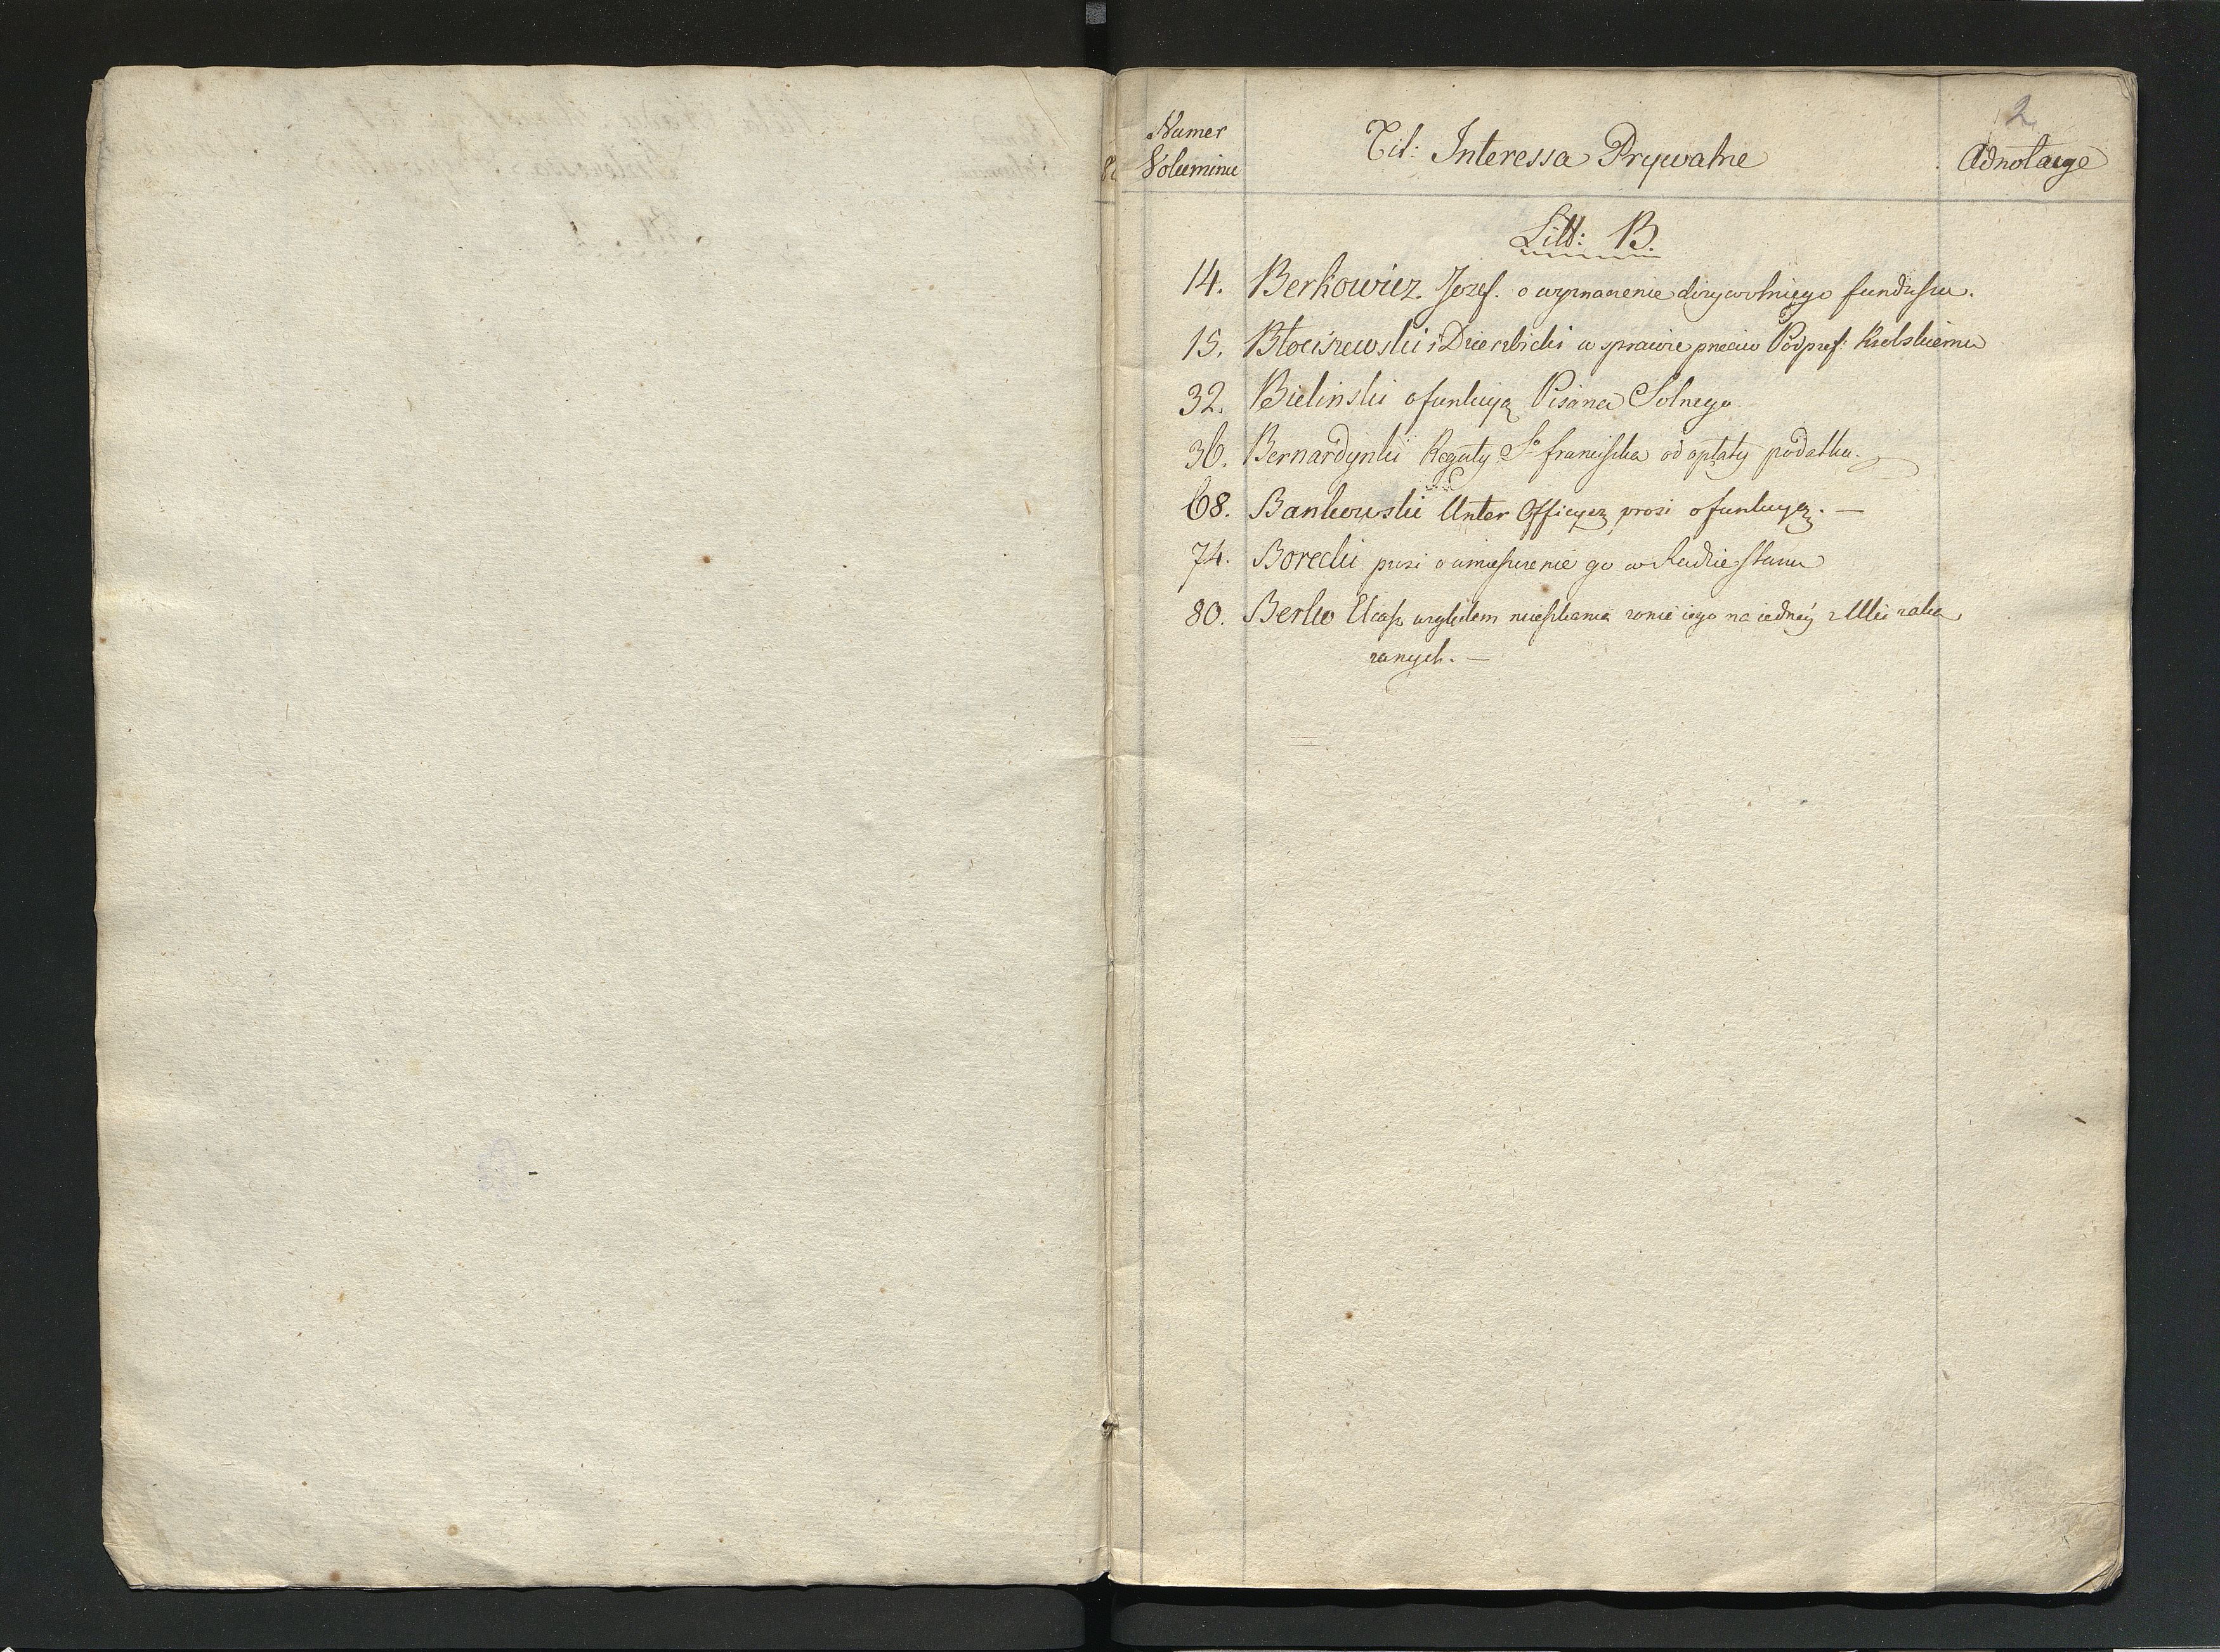 2
Numer
Voluminu
Tit: Interessa Prywatne
Adnotacye
Litt: B.
14. Berkowicz Jozef. o wyznaczenie dożywotniego funduszu.
15. Błociszewski i Dzierzbicki w sprawie przeciw Podpref:
32. Bielinski o funkcyą Pisarza Solnego
36. Bernardynki Reguły S° franciszka od opłaty podatku.
68. Bankowski Unter Officyer prosi o funkcyą. —
74. Borecki prosi o umieszczenie go w Radzie Stanu
80. Berko względem mieszkania żonie iego na iedney z Ulic zaka
zanych. —